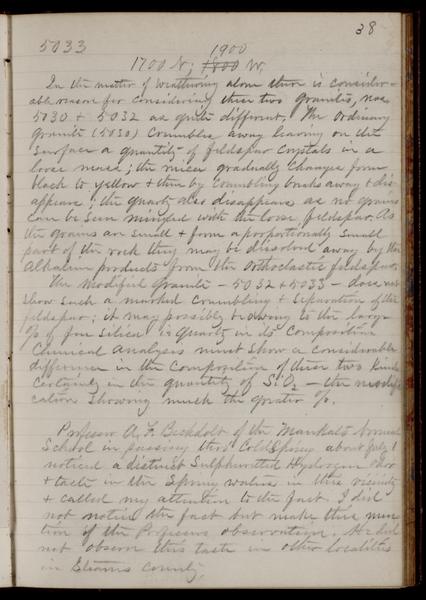 38
5033
1900
1700 N; 1800 W.
In the matter of weathering alone there is consider-
able reason for considering these two granites, nos
5030 + 5032 as quite different. The ordinary
granite (5030) crumbles away leaving on the
surface a quantity of feldspar crystals in a
loose mass; the mica gradually changes from
black to yellow + then by crumbling breaks away + dis-
appears; the quartz also disappears as no grains
can be seen mingled with the loose feldspar. As
the grains are small + form a proportionally small
part of the rock they may be dissolved away by the
alkaline products from the orthoclastic feldspar.
The modified granite - 5032 + 5033 - does not
show such a marked crumbling + separation of the
feldspar; it may possibly be owing to the large
% of free silica as quartz in its composition
Chemical analyses must show a considerable
difference in the composition of these two kinds
certainly in the quantity of SiO2 - the modifi-
cation showing much the greater %.
Professor A. F. Bechdolt of the Mankato Normal
School in passing thro Cold Spring about July 1
noticed a distinct Sulphuretted Hydrogen odor
+ taste in the Spring waters in this vicinity
+ called my attention to the fact. I did
not notice the fact but make this men-
tion of the Professors observation. He did
not observe this taste in other localities
in Stearns County.